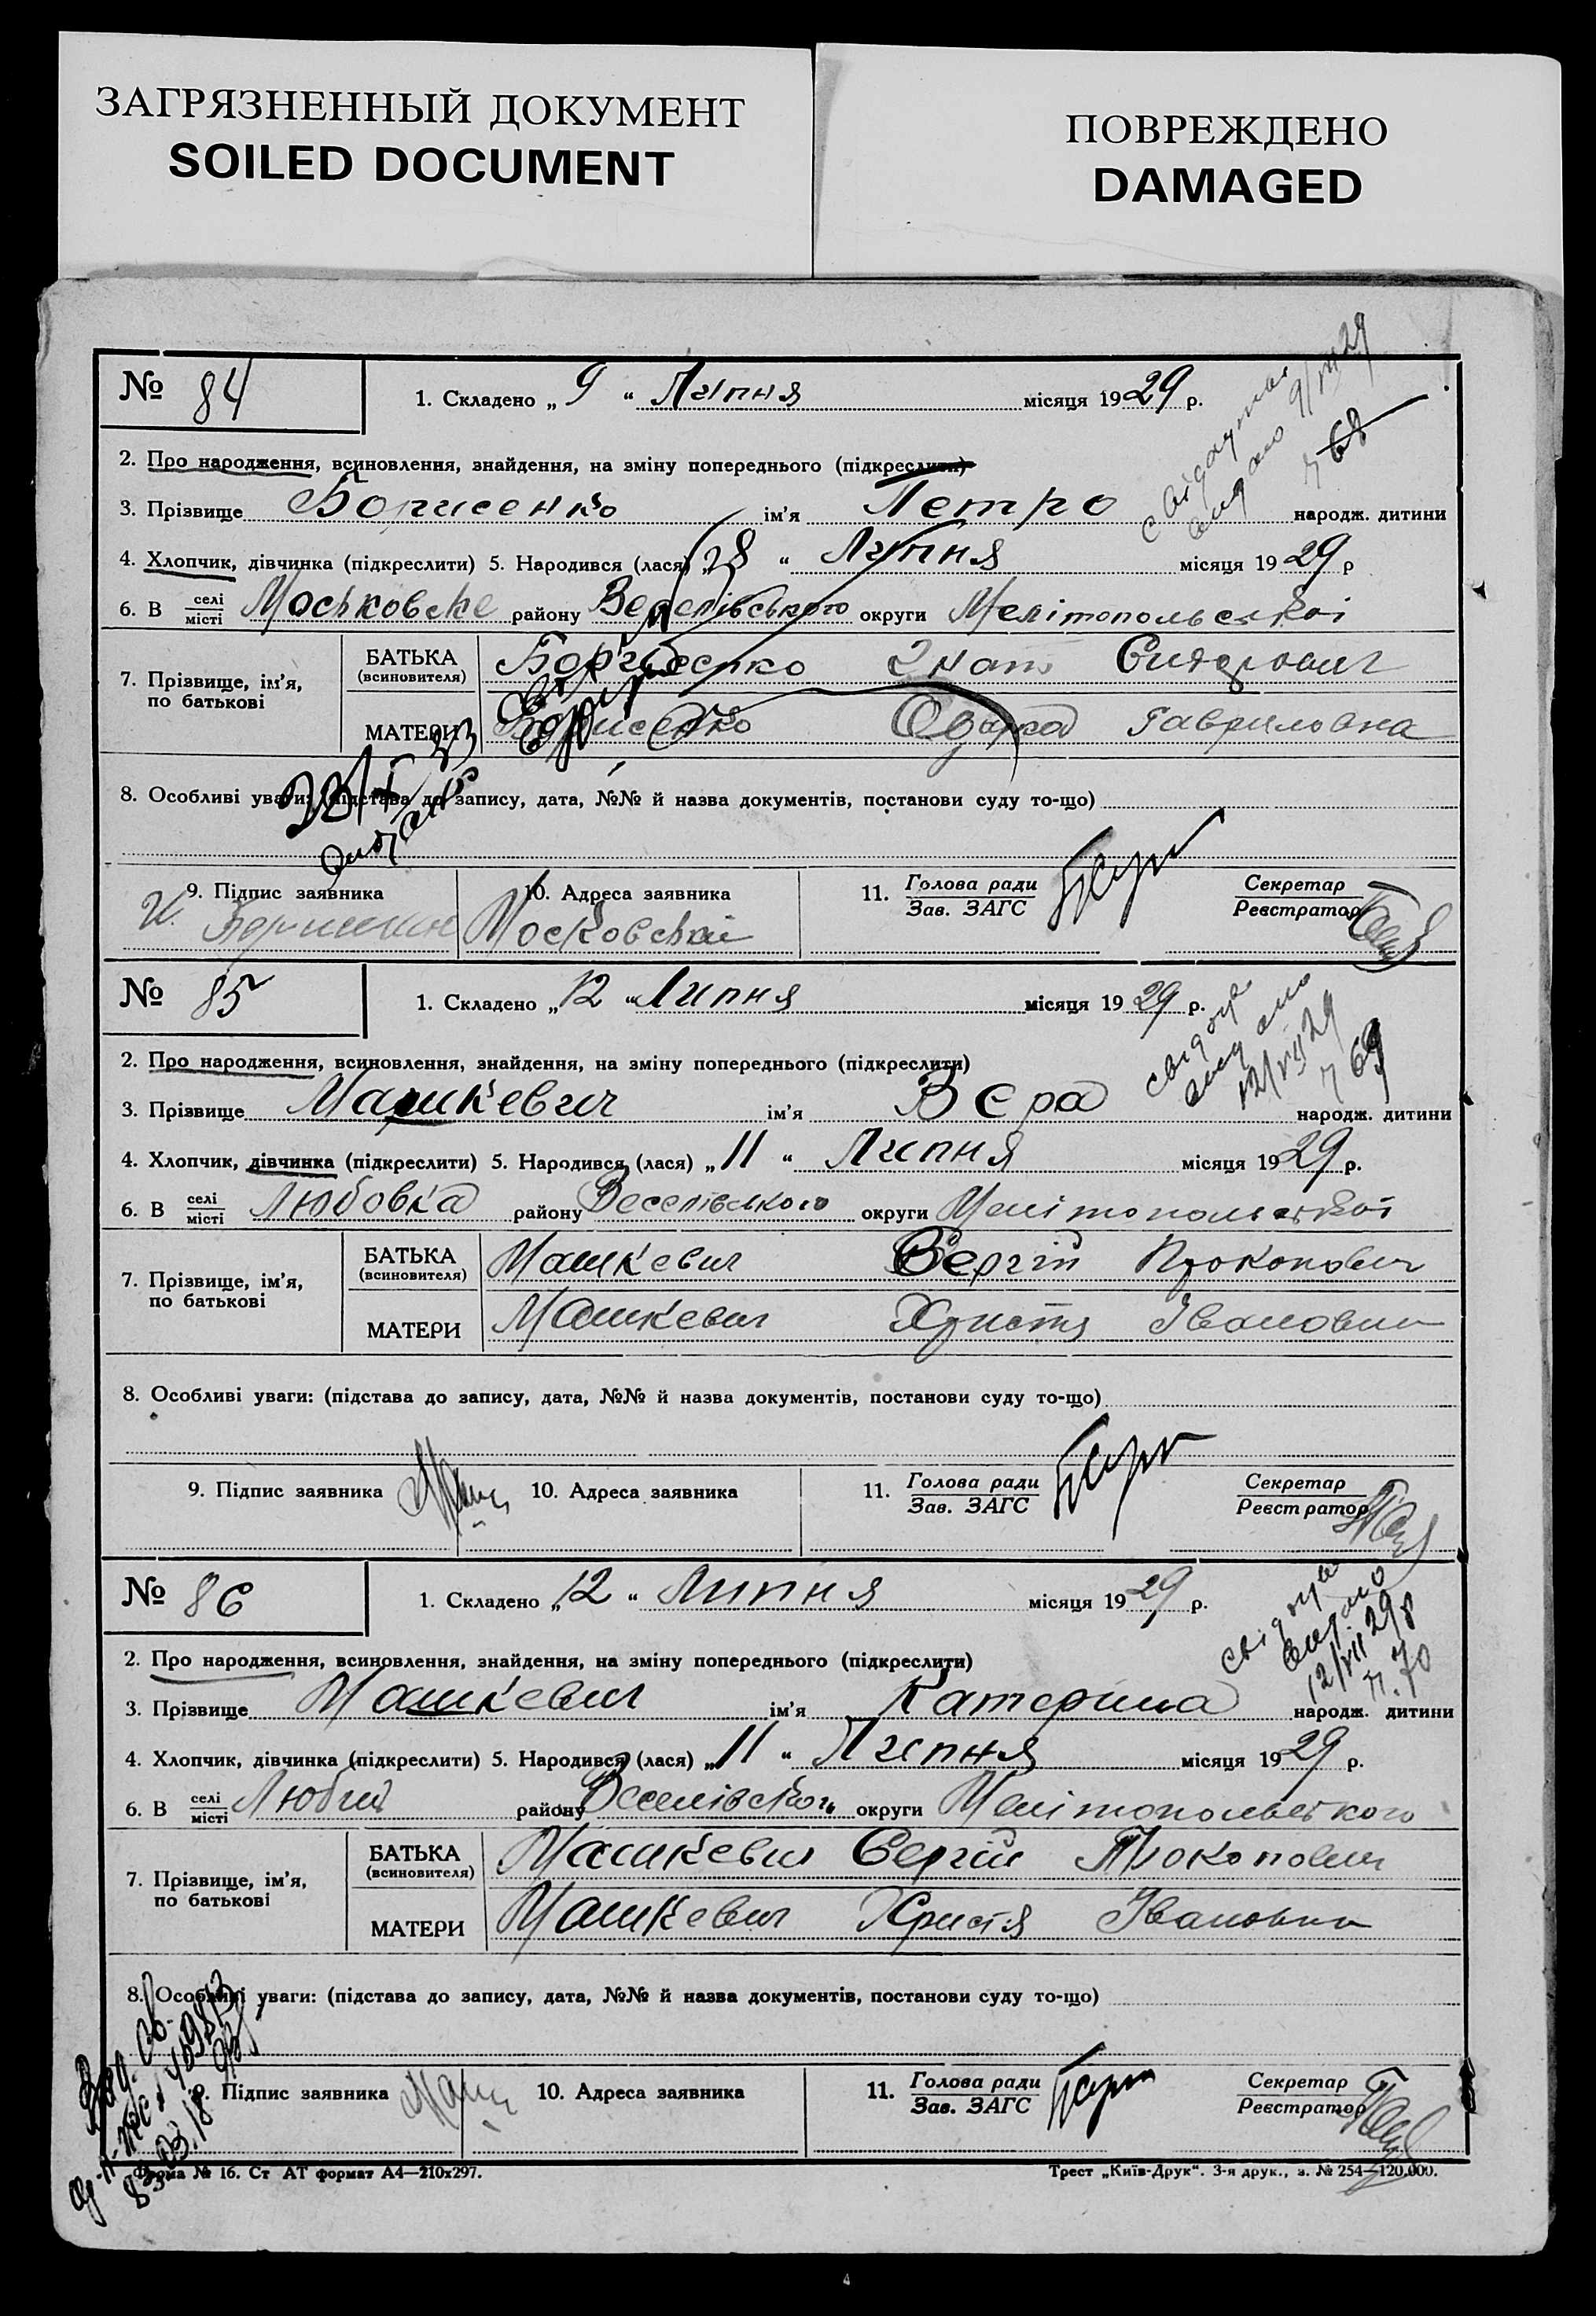 ЗАГРЯЗНЕННЫЙ ДОКУМЕНТ
SOILED DOCUMENT
ПОВРЕЖДЕНО
DAMAGED
№ 84
1. Складено „ 9 “ Липня місяця 1929 р.
видано 9/VII 29
68
2. Про народження, всиновлення, знайдення, на зміну попереднього (підкреслити)
3. Прізвище Борисенко ім'я Петро народж. дитини
4. Хлопчик, дівчинка (підкреслити) 5. Народився (лася) „ 28 “ Липня місяця 1929 р
6. В селі/місті Московське району Веселівського округи Мелітопольської
7. Прізвище, ім'я, по батькові
БАТЬКА (всиновителя) Борисенко Гнат Сидорович
МАТЕРИ Борисенко Одарка Гавриловна
8. Особливі уваги: (підстава до запису, дата, №№ й назва документів, постанови суду то-що)
9. Підпис заявника
10. Адреса заявника Московськ
11. Голова ради
Зав. ЗАГС
Секретар
Реєстратор
№ 85
1. Складено „ 12 “ Липня місяця 1929 р.
видано
12/VII 29
69
2. Про народження, всиновлення, знайдення, на зміну попереднього (підкреслити)
3. Прізвище Машкевич ім'я Вера народж. дитини
4. Хлопчик, дівчинка (підкреслити) 5. Народився (лася) „ 11 “ Липня місяця 1929 р.
6. В селі/місті Любовка району Веселівського округи Мелітопольської
7. Прізвище, ім'я, по батькові
БАТЬКА (всиновителя) Машкевич Сергій Прокопович
МАТЕРИ Машкевич Христя Івановна
8. Особливі уваги: (підстава до запису, дата, №№ й назва документів, постанови суду то-що)
9. Підпис заявника
10. Адреса заявника
11. Голова ради
Зав. ЗАГС
Секретар
Реєстратор
№ 86
1. Складено „ 12 “ Липня місяця 1929 р.
видано
12/VII 29 р
н. 70
2. Про народження, всиновлення, знайдення, на зміну попереднього (підкреслити)
3. Прізвище Машкевич ім'я Катерина народж. дитини
4. Хлопчик, дівчинка (підкреслити) 5. Народився (лася) „ 11 “ Липня місяця 1929 р.
6. В селі/місті району Веселівського округи Мелітопольского
7. Прізвище, ім'я, по батькові
БАТЬКА (всиновителя) Машкевич Сергій Прокопович
МАТЕРИ Машкевич Христя Івановна
8. Особливі уваги: (підстава до запису, дата, №№ й назва документів, постанови суду то-що)
9. Підпис заявника
10. Адреса заявника
11. Голова ради
Зав. ЗАГС
Секретар
Реєстратор
Форма № 16. Ст АТ формат А4—210х297.
Трест „Київ-Друк“. 3-я друк., з. № 254—120.000.